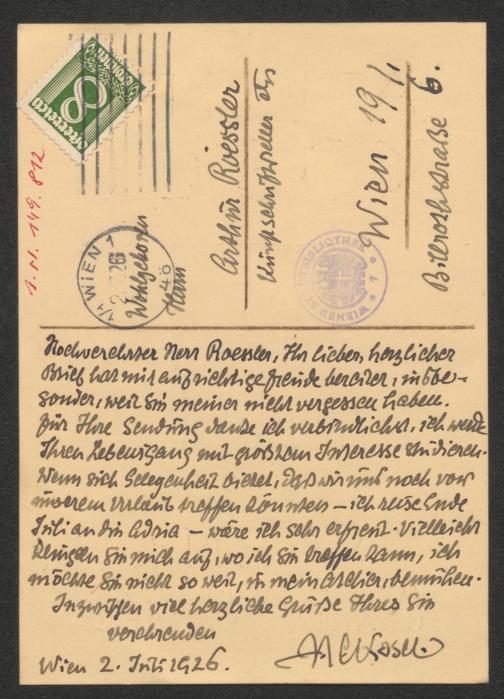 8
Österreich
Groschen
1. N. 149.812
1/1 WIEN 1
Wohlgeboren
Herrn
Arthur Roessler
Kunstschriftsteller etc
Wien 19/1
Billrothstraße 6.
WIENER STADTBIBLIOTHEK
Hochverehrter Herr Roessler, Ihr lieber, herzlicher
Brief hat mir aufrichtige Freude bereitet, insbe-
sonder, weil Sie meiner nicht vergessen haben.
Für Ihre Sendung danke ich verbindlichst, ich werde
Ihren Lebensgang mit größtem Interesse studieren.
Wenn sich Gelegenheit bietet, daß wir uns noch vor
unserem Urlaub treffen könnten – ich reise Ende
Juli an die Adria – wäre ich sehr erfreut. Vielleicht
klingeln Sie mich auf, wo ich Sie treffen kann, ich
möchte Sie nicht so weit, in mein Atelier, bemühen.
Inzwischen viel herzliche Grüße Ihres Sie
verehrenden
Wien 2. Juli 1926.